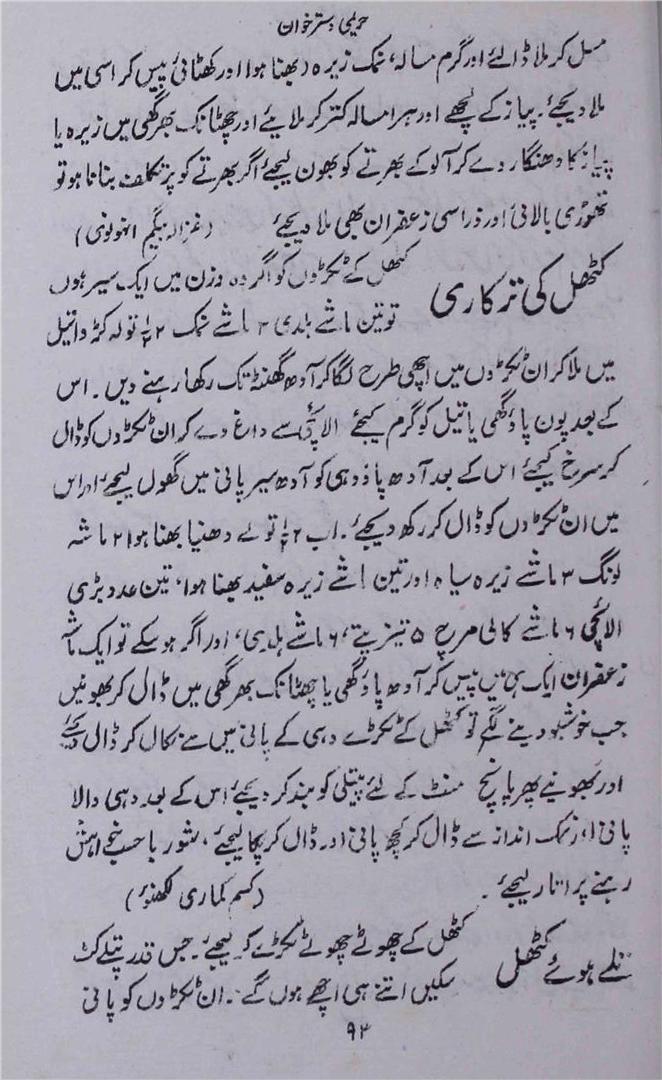 حریمی دسترخوان
مسل کر ملا ڈالئے اور گرم مسالہ، نمک زیرہ (بھنا ہوا اور کھٹائی پیس کر اسی میں
ملا دیجئے۔ پیاز کے لچھے اور ہرا مسالہ کتر کر ملائیے اور چھٹانک بھر گھی میں زیرہ یا
پیاز کا دھنگار دے کر آلو کے بھرتے کو بھون لیجئے اگر بھرتے کو پُر تکلف بنانا ہو تو
تھوڑی بالائی اور ذرا سی زعفران بھی ملا دیجئے (غزالہ بیگم انہونوی)
کٹھل کی ترکاری
کٹھل کے ٹکڑوں کو اگر وہ وزن میں ایک سیر ہوں
تو تین ماشے ہلدی ۳ ماشے نمک ۲½ تولہ کڑوا تیل
میں ملا کر ان ٹکڑوں میں اچھی طرح لگا کر آدھ گھنٹہ تک رکھا رہنے دیں۔ اس
کے بعد پون پاؤ گھی یا تیل کو گرم کیجئے الائچی سے داغ دے کر ان ٹکڑوں کو ڈال
کر سرخ کیجئے اس کے بعد آدھ پاؤ دہی کو آدھ سیر پانی میں گھول لیجئے اور اس
میں ان ٹکڑوں کو ڈال کر رکھ دیجئے۔ اب ۲½ تولے دھنیا بھنا ہوا ۲ ماشہ
لونگ ۳ ماشے زیرہ سیاہ اور تین ماشے زیرہ سفید بھنا ہوا، تین عدد بڑی
الائچی ۶ ماشے کالی مرچ ۵ تیزپتے، ۶ ماشے ہلدی، اور اگر ہو سکے تو ایک ماشہ
زعفران ایک ہی میں پیس کر آدھ پاؤ گھی یا چھٹانک بھر گھی میں ڈال کر بھونیں
جب خوشبو دینے لگے تو کٹھل کے ٹکڑے دہی کے پانی میں سے نکال کر ڈال دیجئے
اور بھونیے پھر پانچ منٹ کے لئے پتیلی کو بند کر دیجئے اس کے بعد دہی والا
پانی اور نمک انداز سے ڈال کر کچھ پانی اور ڈال کر پکا لیجئے، شوربا حسب خواہش
رہنے پر اتار لیجئے۔ (کسم کماری لکھنؤ)
تلے ہوئے کٹھل
کٹھل کے چھوٹے چھوٹے ٹکڑے کر لیجئے۔ جس قدر پتلے کٹ
سکیں اتنے ہی اچھے ہوں گے۔ ان ٹکڑوں کو پانی
۹۲